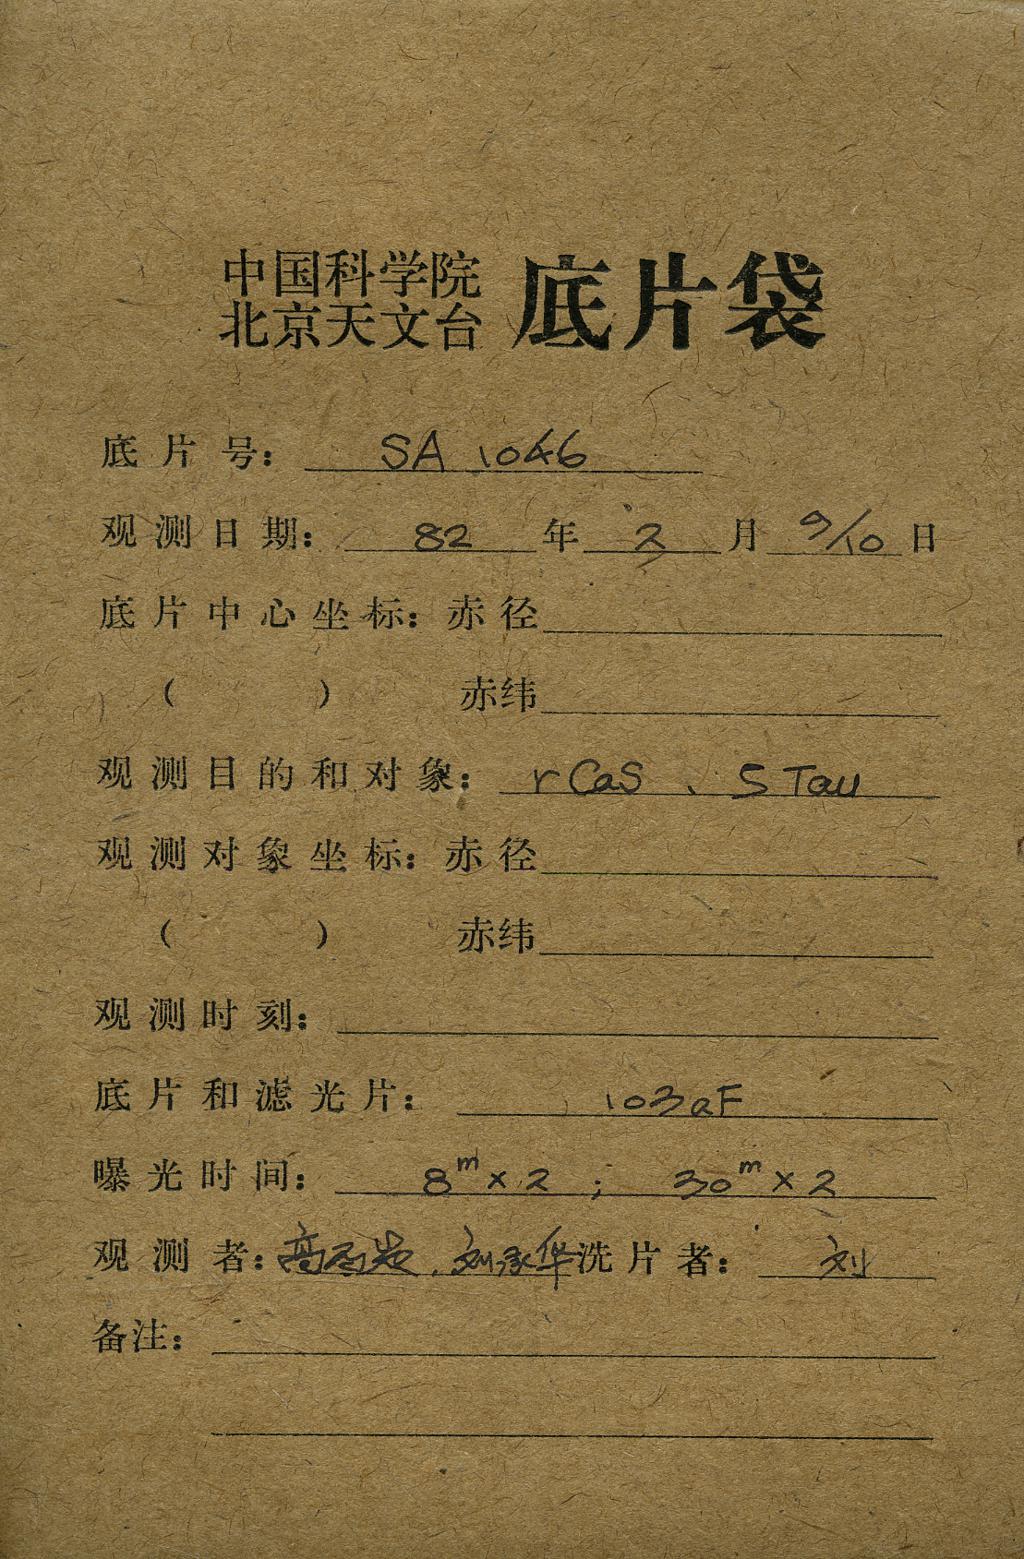 中国科学院
北京天文台
底片袋
底片号： SA 1046
观测日期： 82 年 2 月 9/10 日
底片中心坐标：赤径
（ ） 赤纬
观测目的和对象： r Cas 、 5 Tau
观测对象坐标：赤径
（ ） 赤纬
观测时刻：
底片和滤光片： 103aF
曝光时间： 8m × 2 ； 30m × 2
观测者： 高 、刘 华 洗片者： 刘
备注：